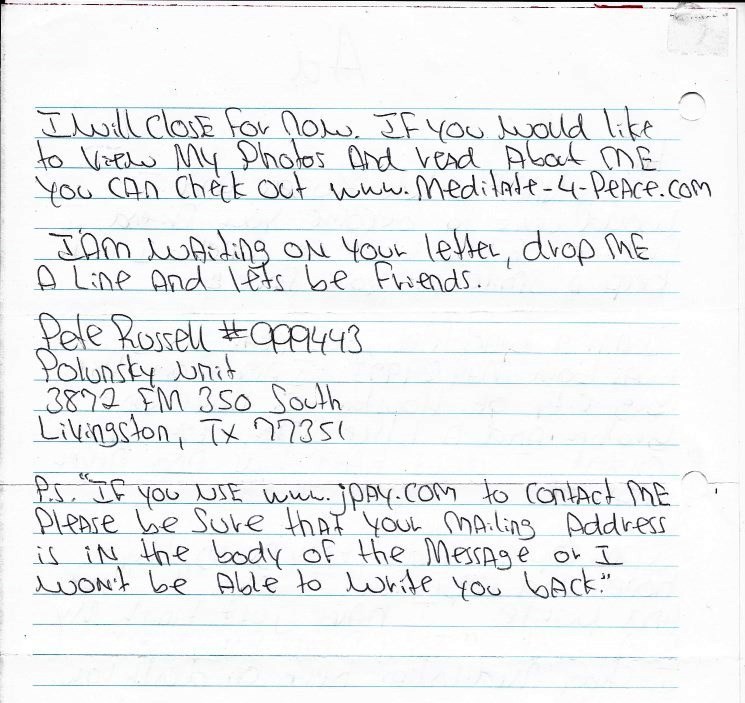 I will close for now. If you would like
to view my photos and read about me
you can check out www.meditate-4-peace.com
I am waiting on your letter, drop me
a line and lets be friends.
Pete Russell #999443
Polunsky Unit
3872 FM 350 South
Livingston, TX 77351
P.S. "If you use www.jpay.com to contact me
please be sure that your mailing address
is in the body of the message or I
won't be able to write you back."